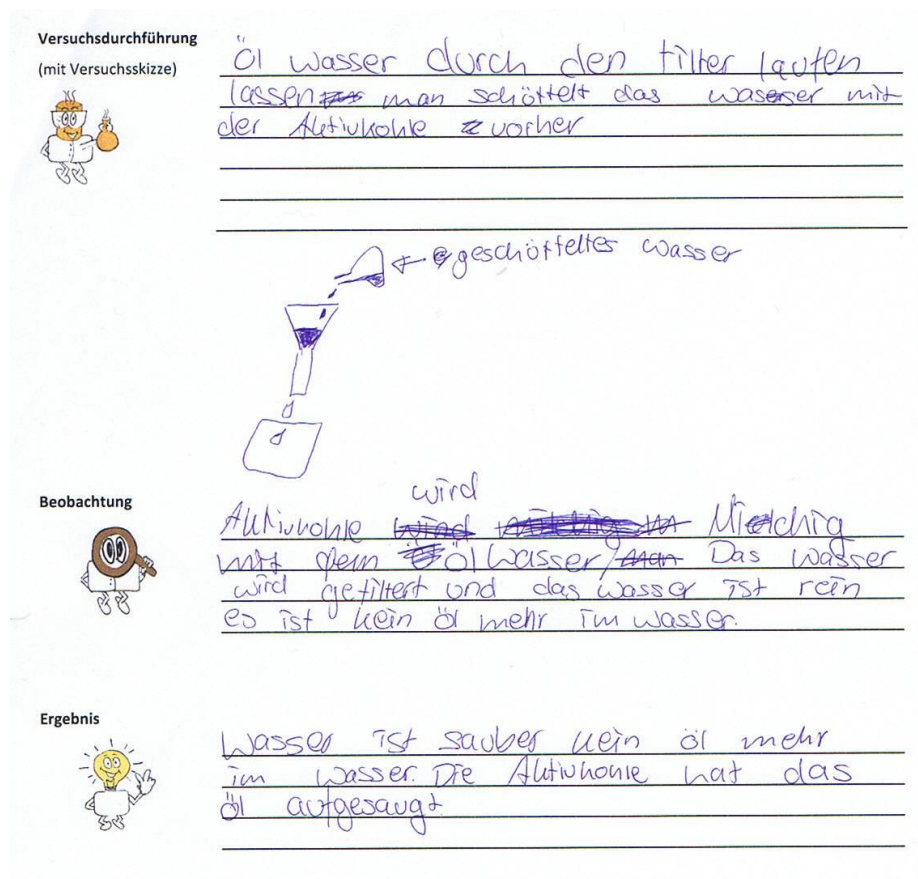 Versuchsdurchführung
(mit Versuchsskizze)
Öl wasser durch den filter laufen
lassen man schöttelt das wasser mit
der Aktivkohle vorher
geschötteltes wasser
Beobachtung
wird
Aktivkohle wird Milchig
mit dem öl wasser, man Das wasser
wird gefiltert und das wasser ist rein
es ist kein öl mehr im wasser.
Ergebnis
Wasser ist sauber kein öl mehr
im wasser. Die Aktivkohle hat das
öl aufgesaugt